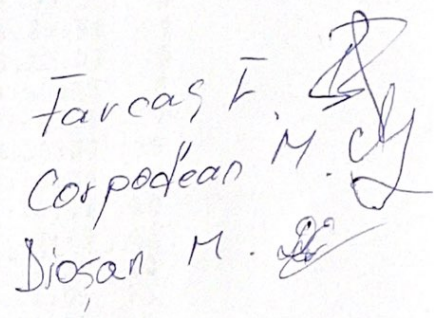 Farcaș F.
Corpodean M.
Dioșan M.